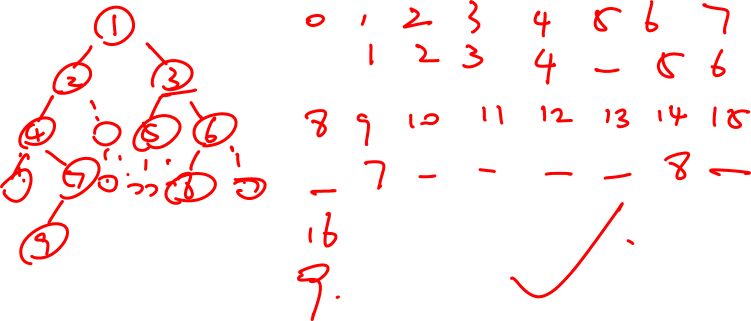 1
2 3
4 5 6
7 8
9
0 1 2 3 4 5 6 7
1 2 3 4 - 5 6
8 9 10 11 12 13 14 15
- 7 - - - - 8 -
16
9.